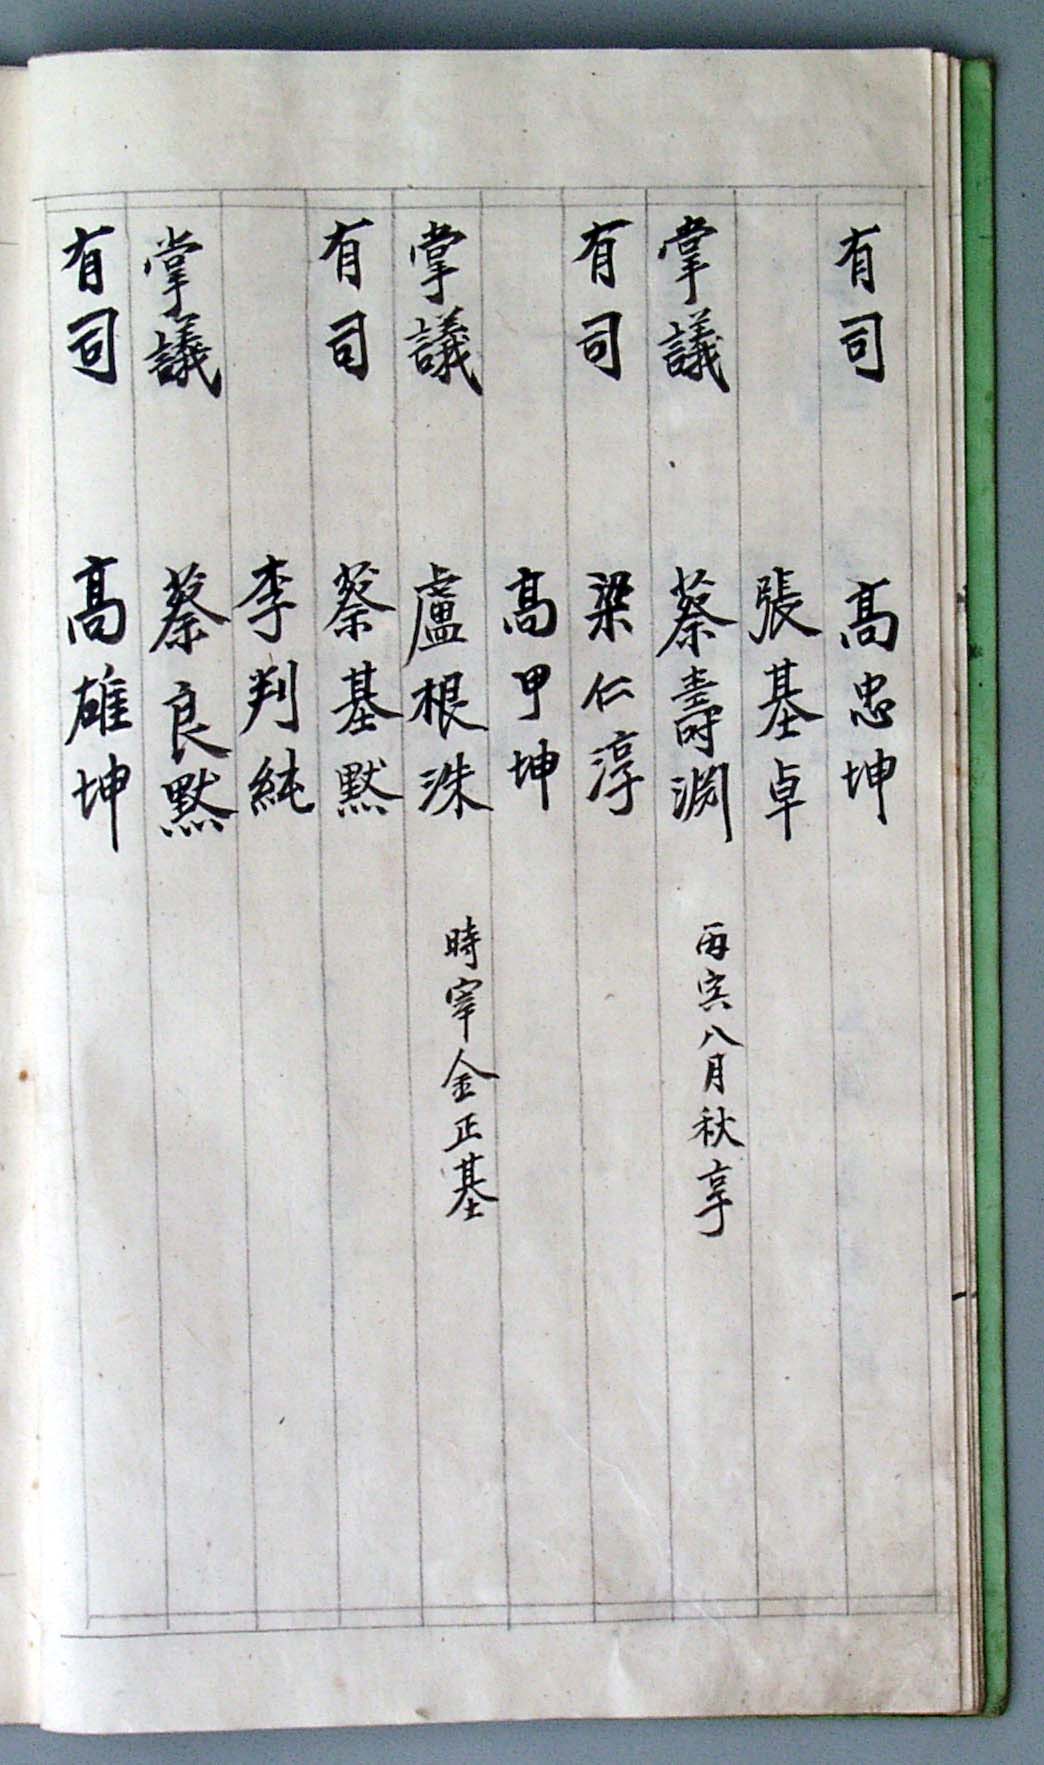 有司 高忠坤
張基卓
掌議 蔡壽淵 丙寅八月秋享
有司 梁仁淳
高甲坤
掌議 盧根洙 時宰金正基
有司 蔡基默
李判純
掌議 蔡良默
有司 高雄坤